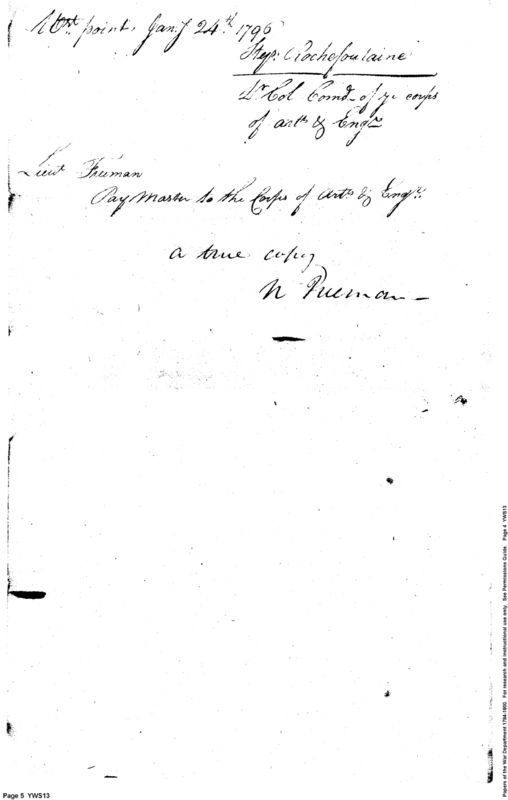 West point, Jany 24th 1796
Step: Rochefontaine
Lt Col Comdt of ye corps
of artts & Engrs
Lieut Freeman
Pay Master to the Corps of Artts & Engrs
a true copy
N Freeman
Page 5 YWS13
Papers of the War Department 1784-1800. For research and instructional use only. See Permissions Guide. Page 4 YWS13